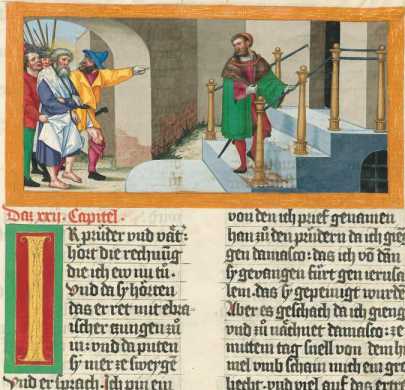 Das xxij. Capitel.
IR prüder vnd vät̾
hört die rechnūg
die ich ew nu tū.
Vnd da sy hörten
das er ret mit ebra
ischer zungen zů
in: vnd da puten
sy mer ze sweygē
Vnd er sprach. Ich pin ein
von den ich prief genamen
han zů den průdern da ich gieng
gen damasco: das ich vō dān
sy gevangen fürt gen ierusa
lem. das sy gepeinigt wurdē
Aber es geschach da ich gieng
vnd zů nächnet damasco: ze
mittem tag snell von dem hi
mel vmb schain mich ein gro
liecht. vnd viel auf das ertri